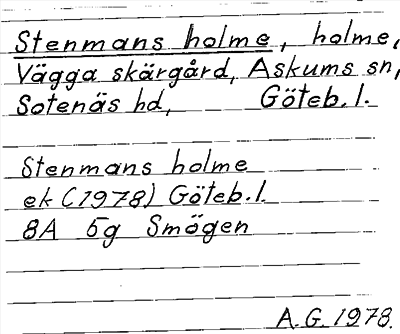 Stenmans holme, holme,
Vägga skärgård, Askums sn,
Sotenäs hd, Göteb.l.
Stenmans holme
ek (1978) Göteb.l.
8A 5g Smögen
A.G. 1978.